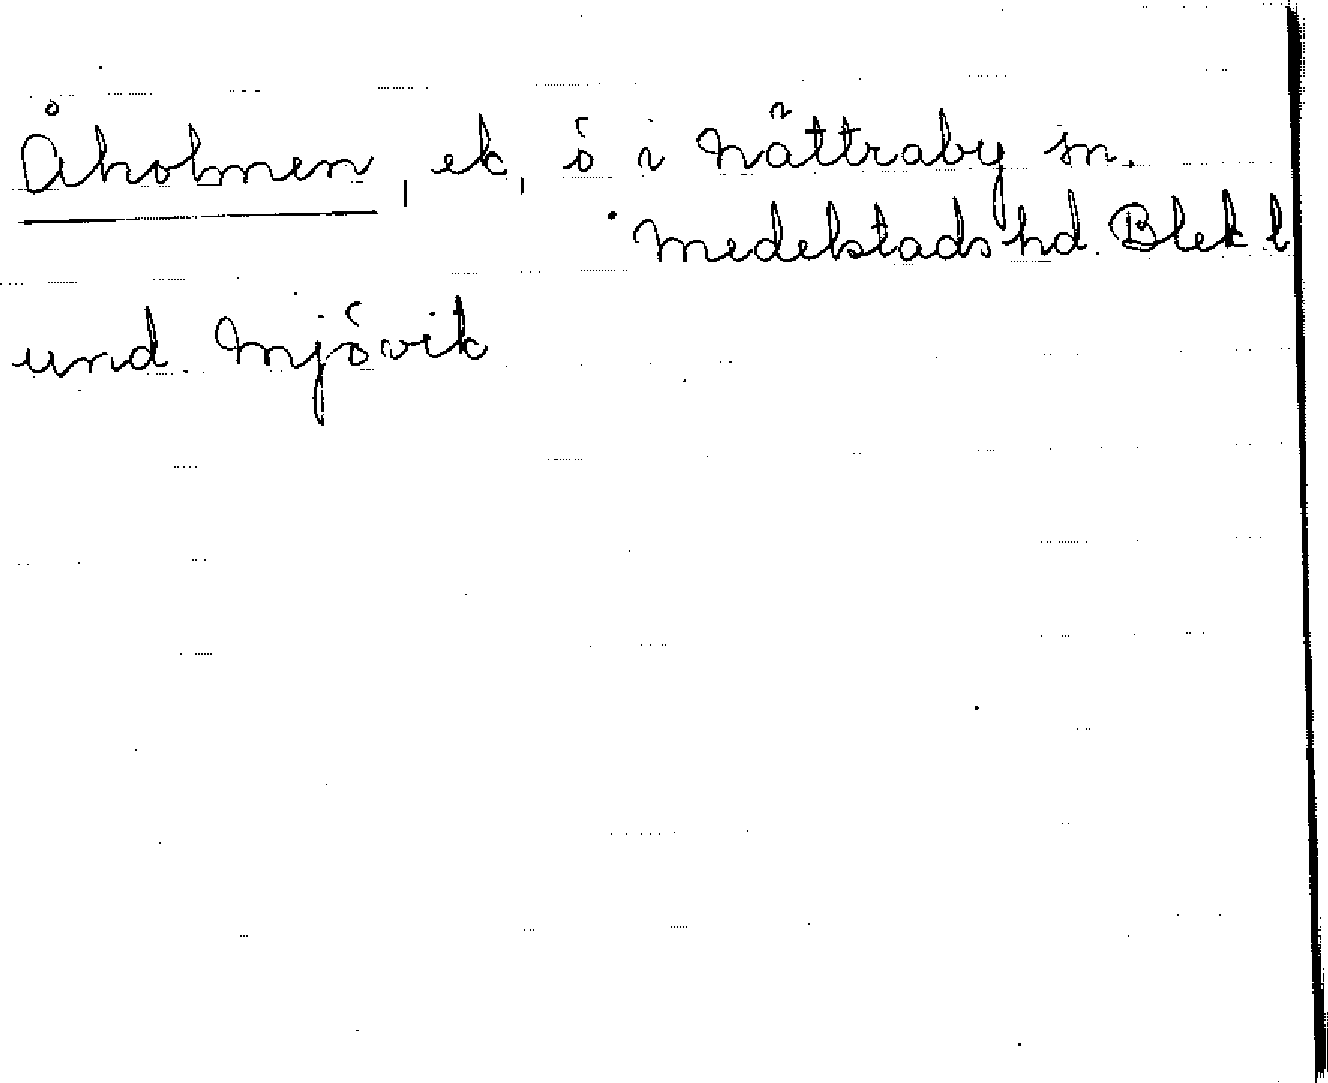 Åholmen, ek, ö i Nättraby sn.
Medelstads hd. Blek l
und. Mjövik